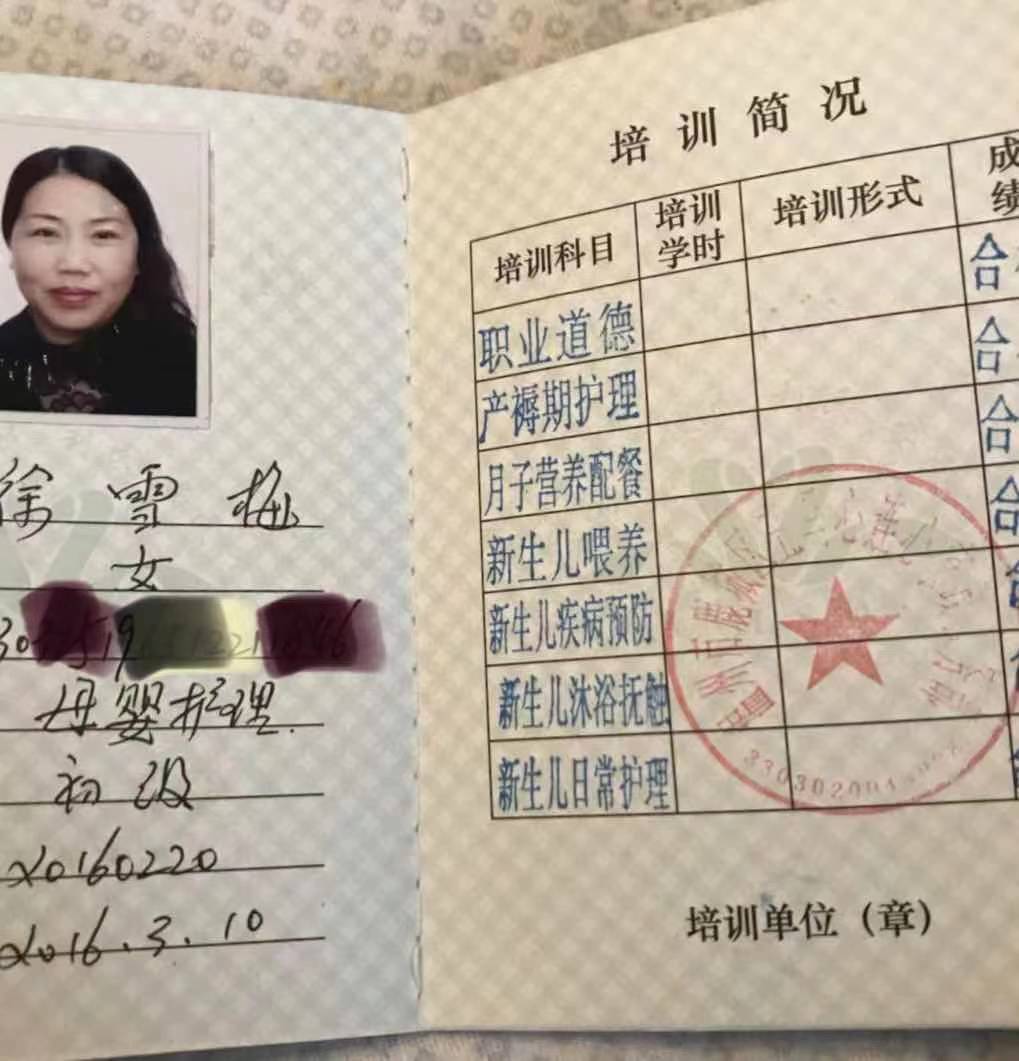 徐雪梅
女
母婴护理
初级
20160220
2016.3.10
培训简况
培训科目 培训学时 培训形式 成绩
职业道德 合
产褥期护理 合
月子营养配餐 合
新生儿喂养 合
新生儿疾病预防
新生儿沐浴抚触
新生儿日常护理
培训单位（章）